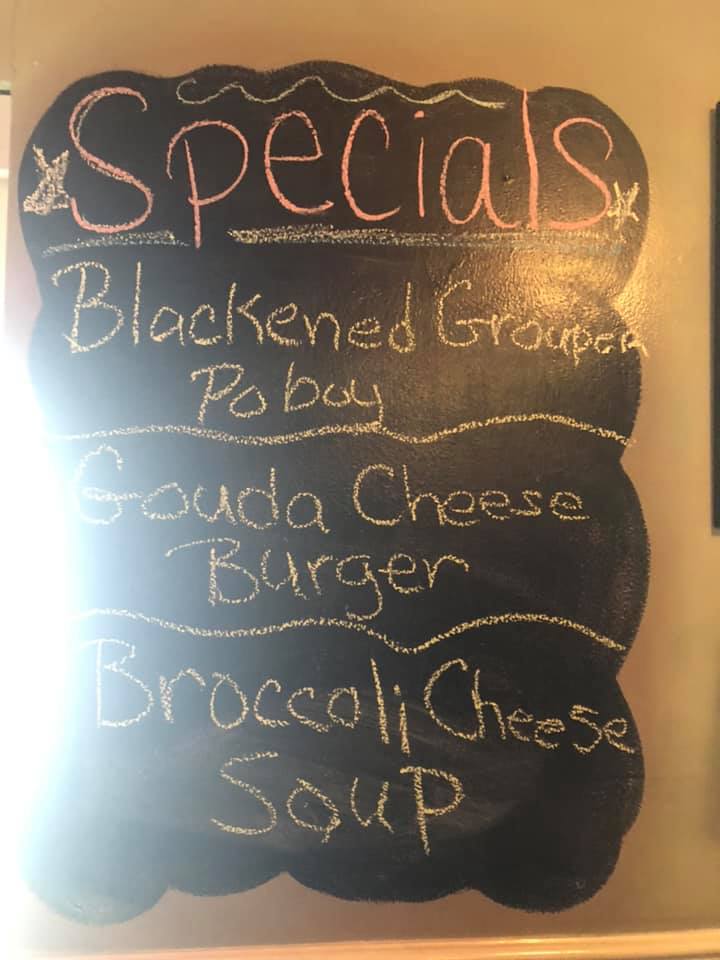 Specials
Blackened Grouper
Po boy
Gouda Cheese
Burger
Broccoli Cheese
Soup